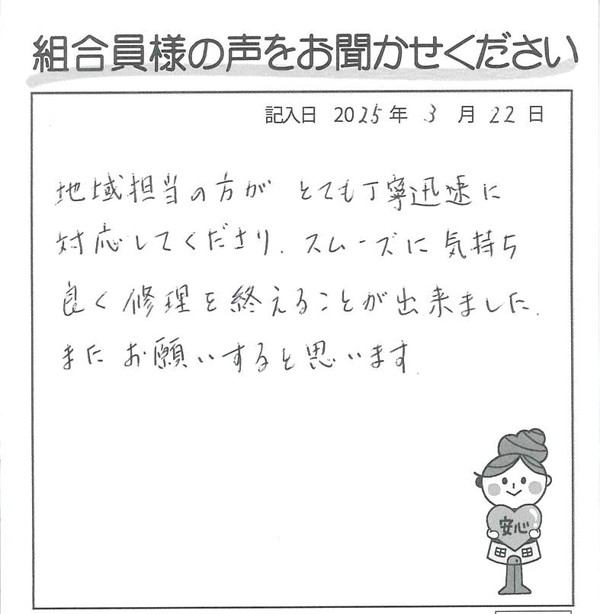 組合員様の声をお聞かせください
記入日 2025年 3月 22日
地域担当の方が とても丁寧迅速に
対応してくださり、スムーズに気持ち
良く修理を終えることが出来ました。
またお願いすると思います。
安心